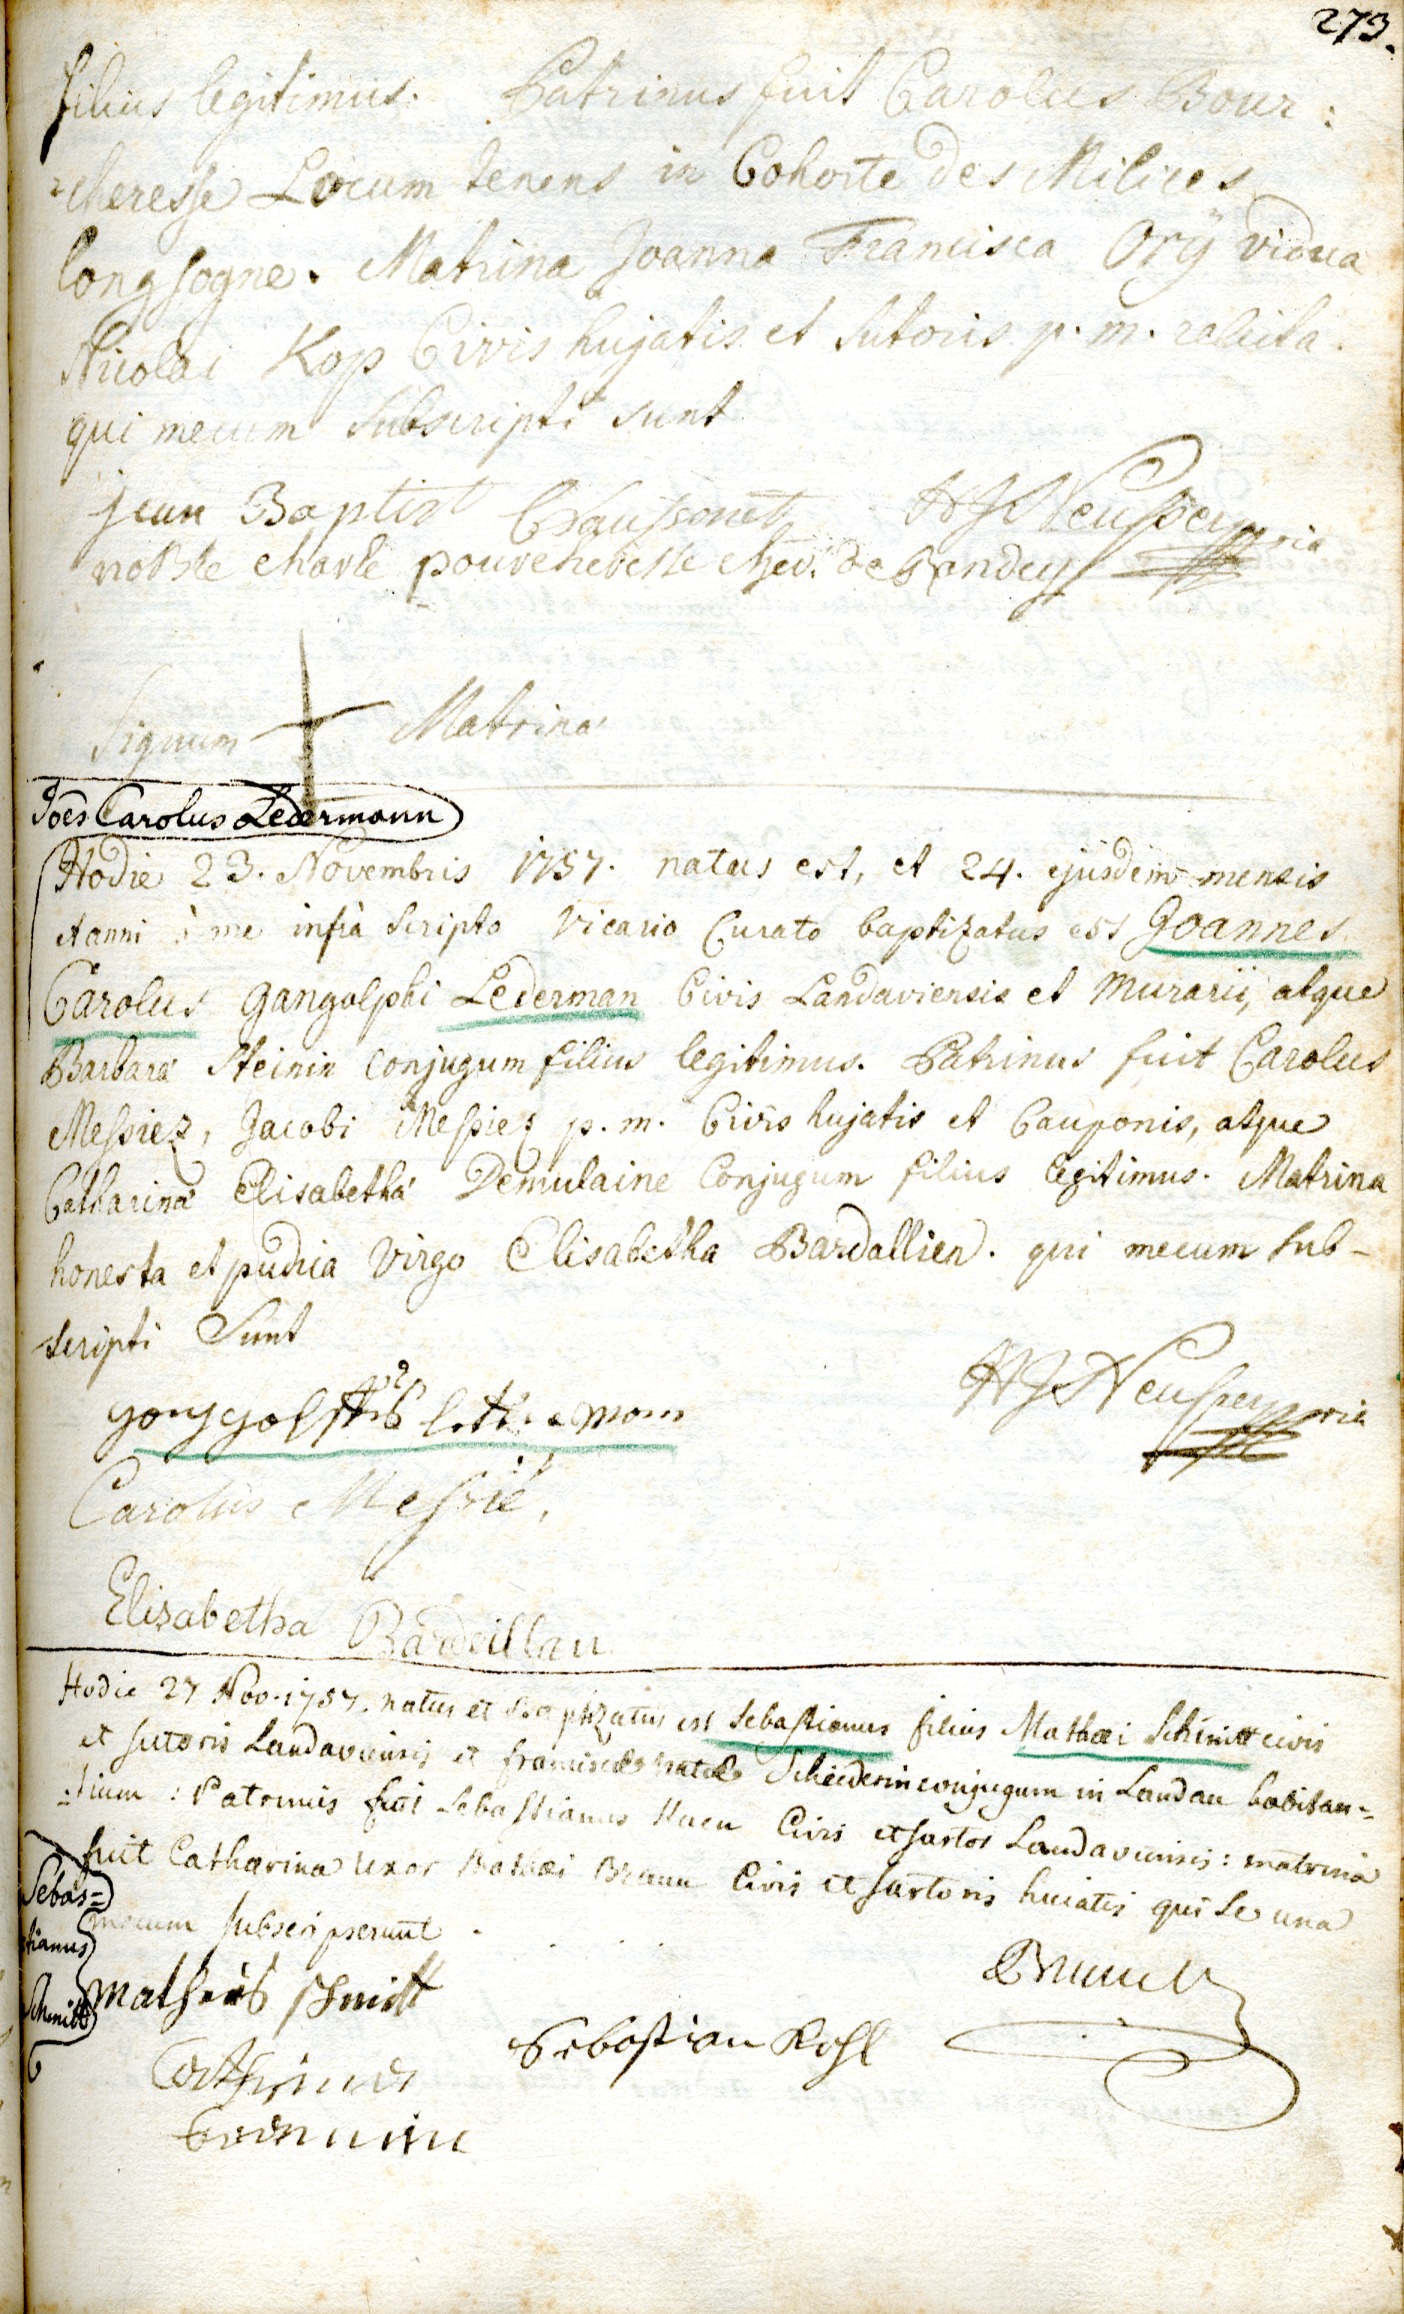 273.
filius legitimus. Patrinus fuit Carolus Bour:
=cheresse Locum tenens in Cohorte des Milices
longsogne. Matrina Joanna Francisca Orÿ vidua
Nicolai Kop Civis hujatis et sutoris p. m. relicta.
qui mecum subscripti sunt
jean Baptist Chaussonet HJ Neussey mria
noble charle pourcheresse chev. de
Signum + Matrina
Joes Carolus Ledermann
Hodie 23. Novembris 1757. natus est, et 24. ejusdem mensis
et anni à me infrà scripto Vicario Curato baptizatus est Joannes
Carolus Gangolphi Lederman Civis Landaviensis et Murarii, atque
Barbara Steinin conjugum filius legitimus. Patrinus fuit Carolus
Messiez, Jacobi Messiez p. m. Civis hujatis et Cauponis, atque
Catharina Elisabetha Demulaine Conjugum filius legitimus. Matrina
honesta et pudica Virgo Elisabetha Bardallien. qui mecum sub-
scripti Sunt
HJ Neussey mria
Carolus Messié,
Elisabetha Bardeillan
Hodie 27 Nov. 1757. natus et baptizatus est Sebastianus filius Mathæi Schmitt civis
et sutoris Landaviensis et franciscæ Schiederin conjugum in Landau habitan=
=tium : Patrinus fuit Sebastianus Civis et sartor Landaviensis : matrina
fuit Catharina uxor Mathæi Braun Civis et sartoris huiatis qui se una
mecum subscripserunt.
Sebas=
tianus
Schmitt
Matheis schmitt
Sebastian Kohl